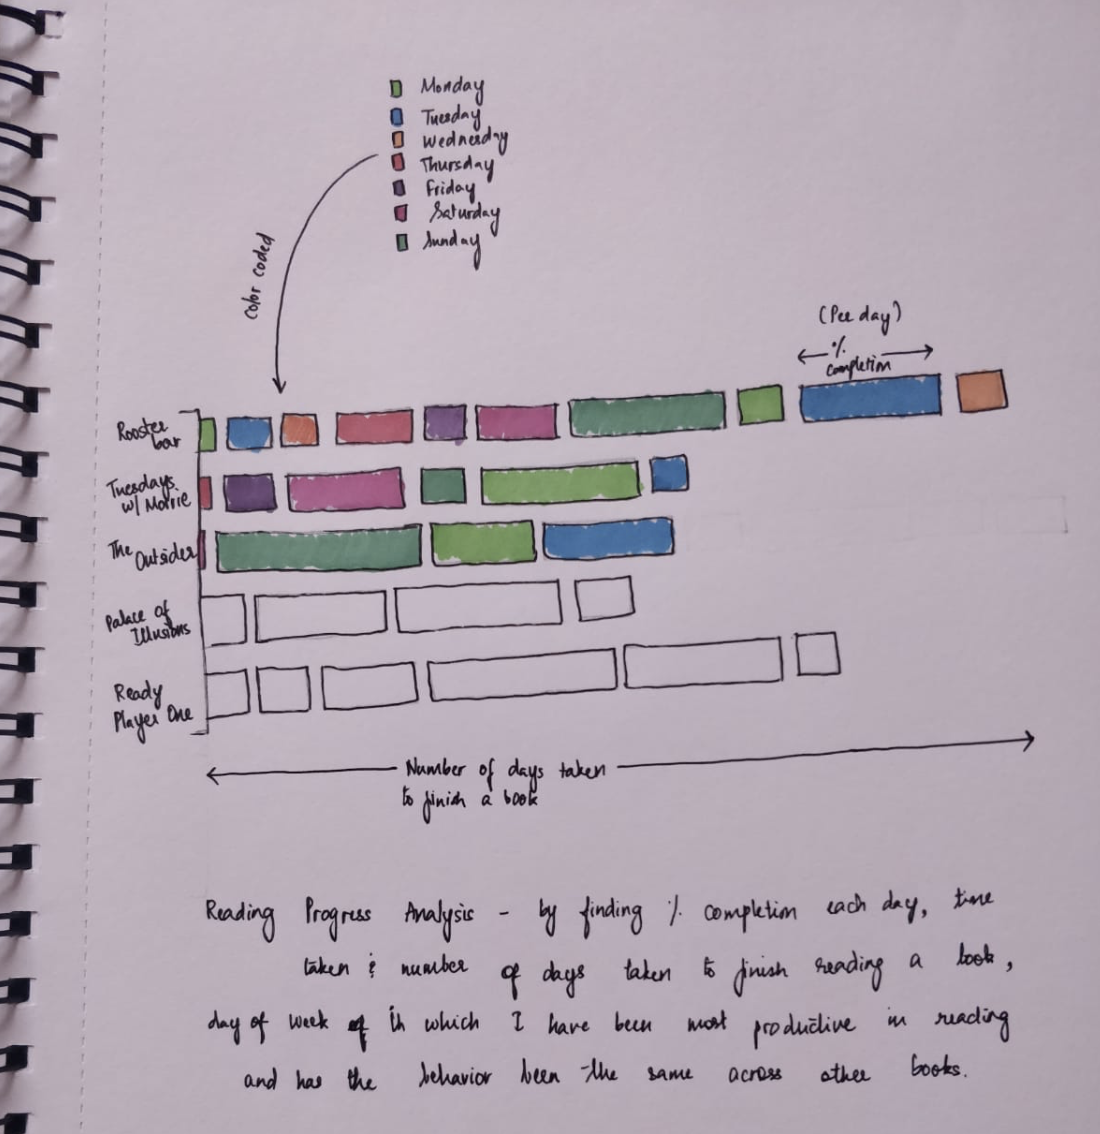 Monday
Tuesday
Wednesday
Thursday
Friday
Saturday
Sunday
color coded
(Per day)
%
completion
Rooster
bar
Tuesdays
w/ Morrie
The Outsider
Palace of
Illusions
Ready
Player One
Number of days taken
to finish a book
Reading Progress Analysis - by finding % completion each day, time
taken & number of days taken to finish reading a book,
day of week of in which I have been most productive in reading
and has the behavior been the same across other books.